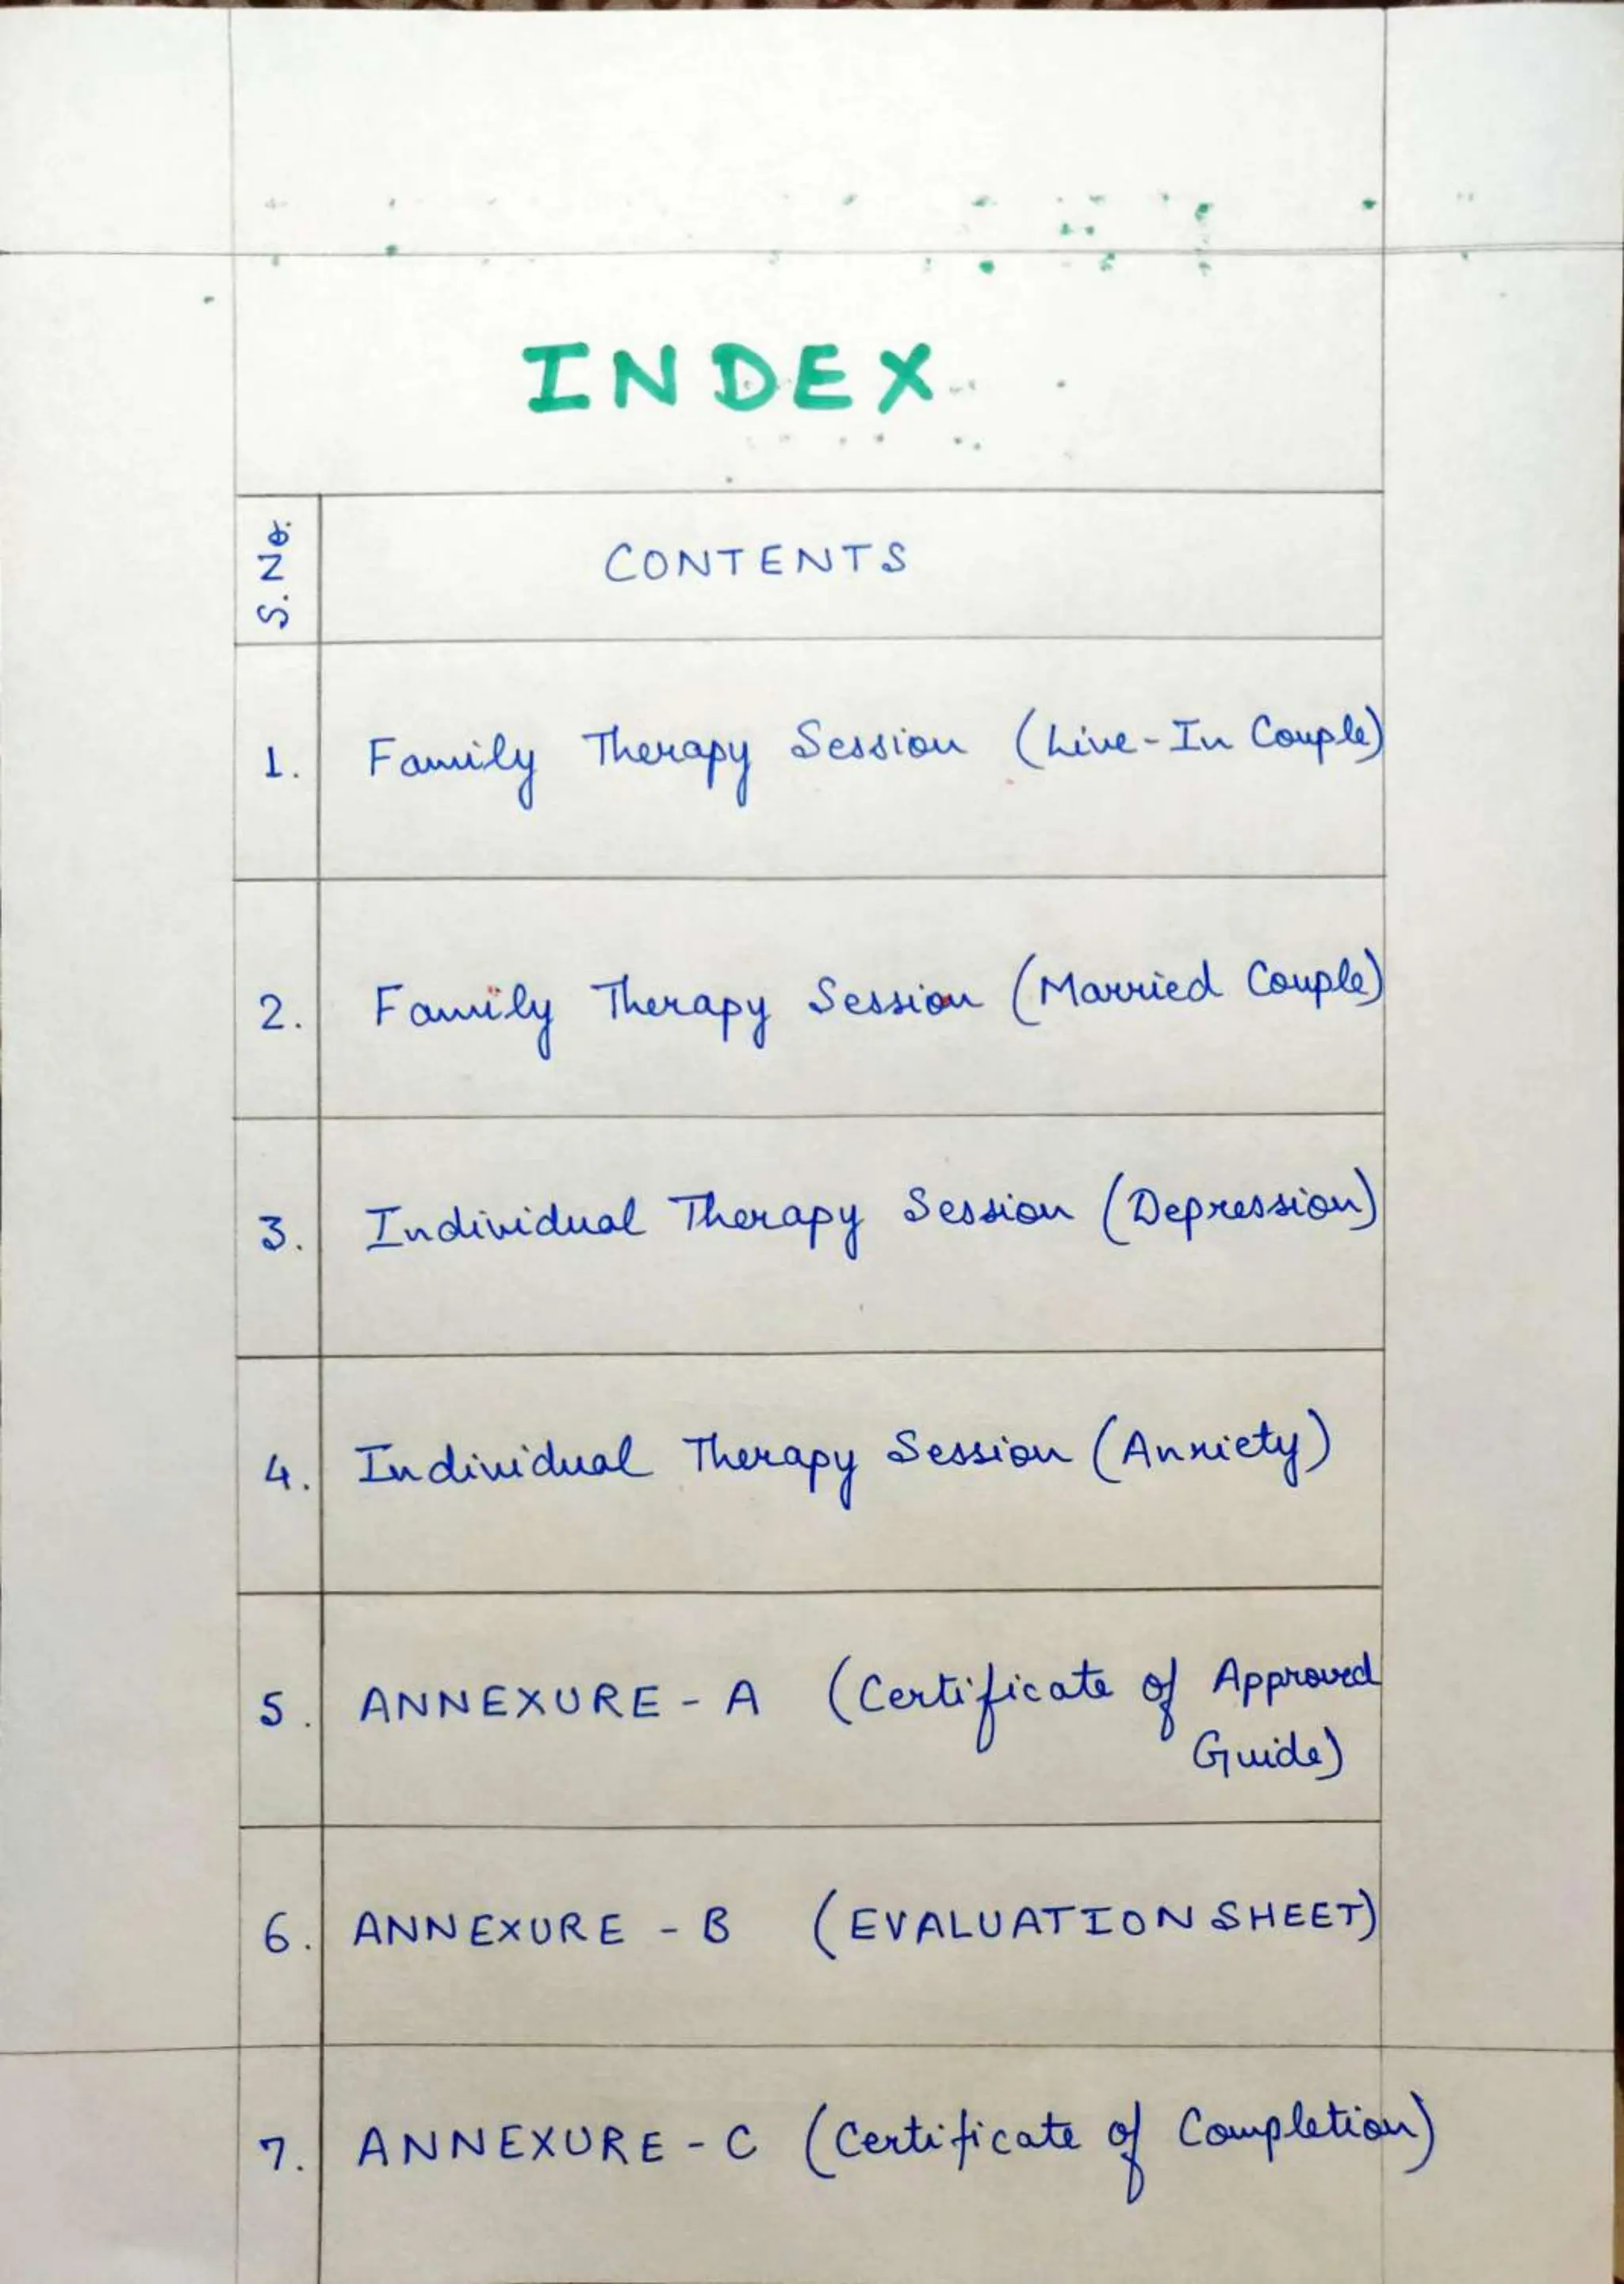 INDEX
S. No. CONTENTS
1. Family Therapy Session (Live-In Couple)
2. Family Therapy Session (Married Couple)
3. Individual Therapy Session (Depression)
4. Individual Therapy Session (Anxiety)
5. ANNEXURE - A (Certificate of Approved
Guide)
6. ANNEXURE - B (EVALUATION SHEET)
7. ANNEXURE - C (Certificate of Completion)